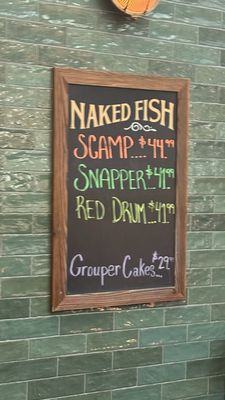 NAKED FISH
SCAMP....$44.99
SNAPPER...$41.99
RED DRUM...$41.99
Grouper Cakes...$29.99